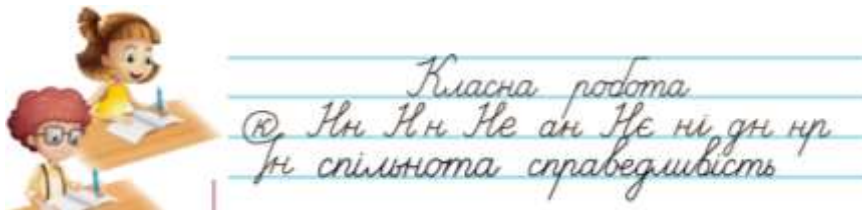 Класна робота
н Нн Нн Не ан Нє ні дн нр
Ін спільнота справедливість